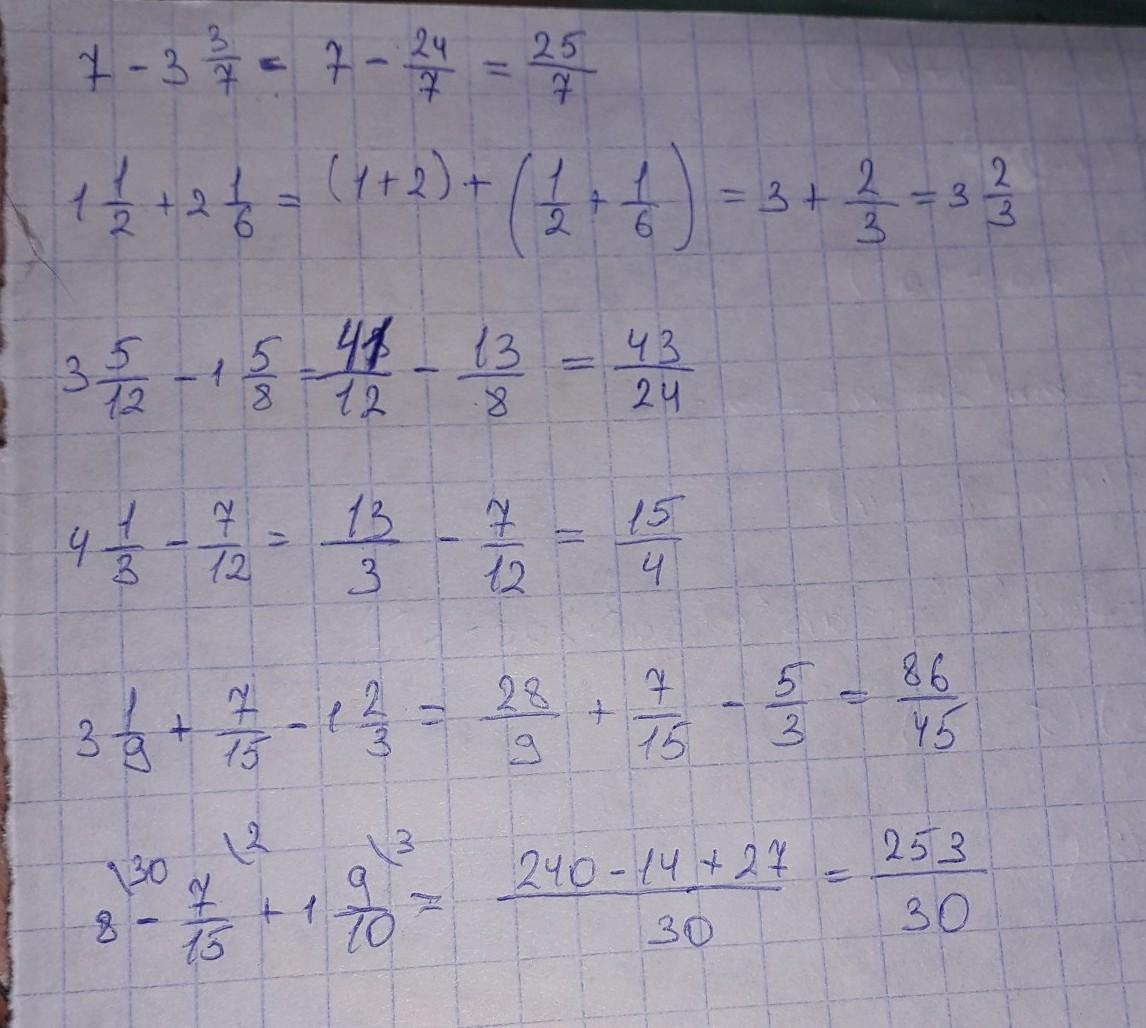 7 - 3 3/7 = 7 - 24/7 = 25/7
1 1/2 + 2 1/6 = (1+2) + (1/2 + 1/6) = 3 + 2/3 = 3 2/3
3 5/12 - 1 5/8 = 41/12 - 13/8 = 43/24
4 1/3 - 7/12 = 13/3 - 7/12 = 15/4
3 1/9 + 7/15 - 1 2/3 = 28/9 + 7/15 - 5/3 = 86/45
\30 \2 \3
8 - 7/15 + 1 9/10 = (240 - 14 + 27)/30 = 253/30